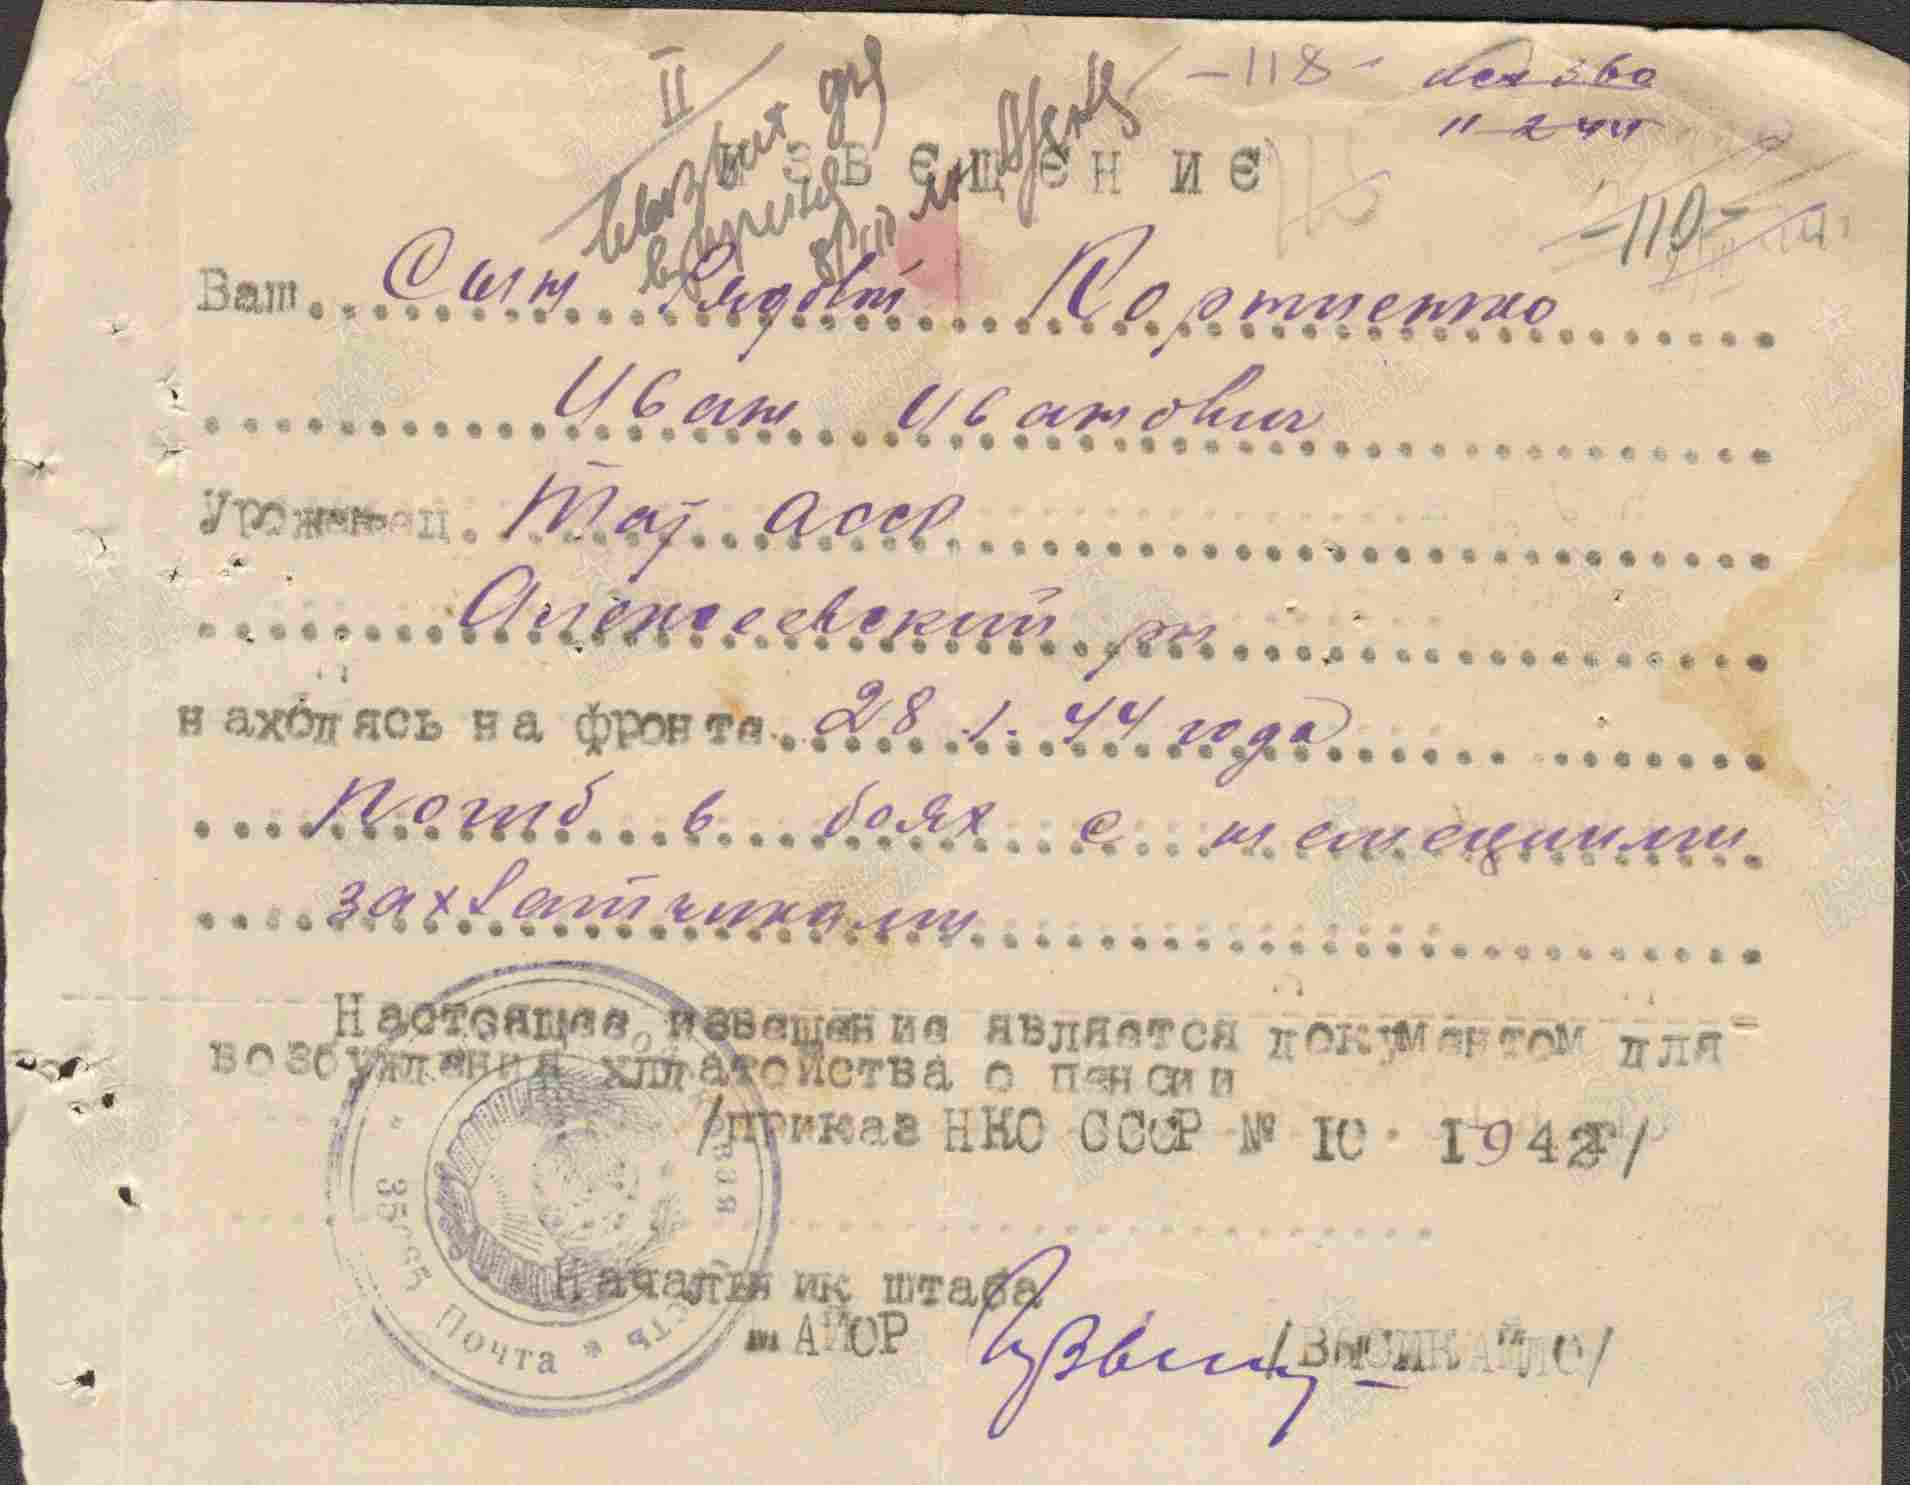 II
-118-
11-2-44
ИЗВЕЩЕНИЕ
-110-
Ваш Сын Рядовой Кортненко
Иван Иванович
Урожанец Тат. АССР
Алексеевский рн
находясь на фронте 28.1.44 года
Погиб в боях с немецкими
захватчиками
Настоящее извещение является документом для
возбуждения хлдатойства о пенсии
/приказ НКО СССР № IC. 1942г/
Начальник штаба
МАЙОР /ВЫСИКАЙЛО/
Почта * часть